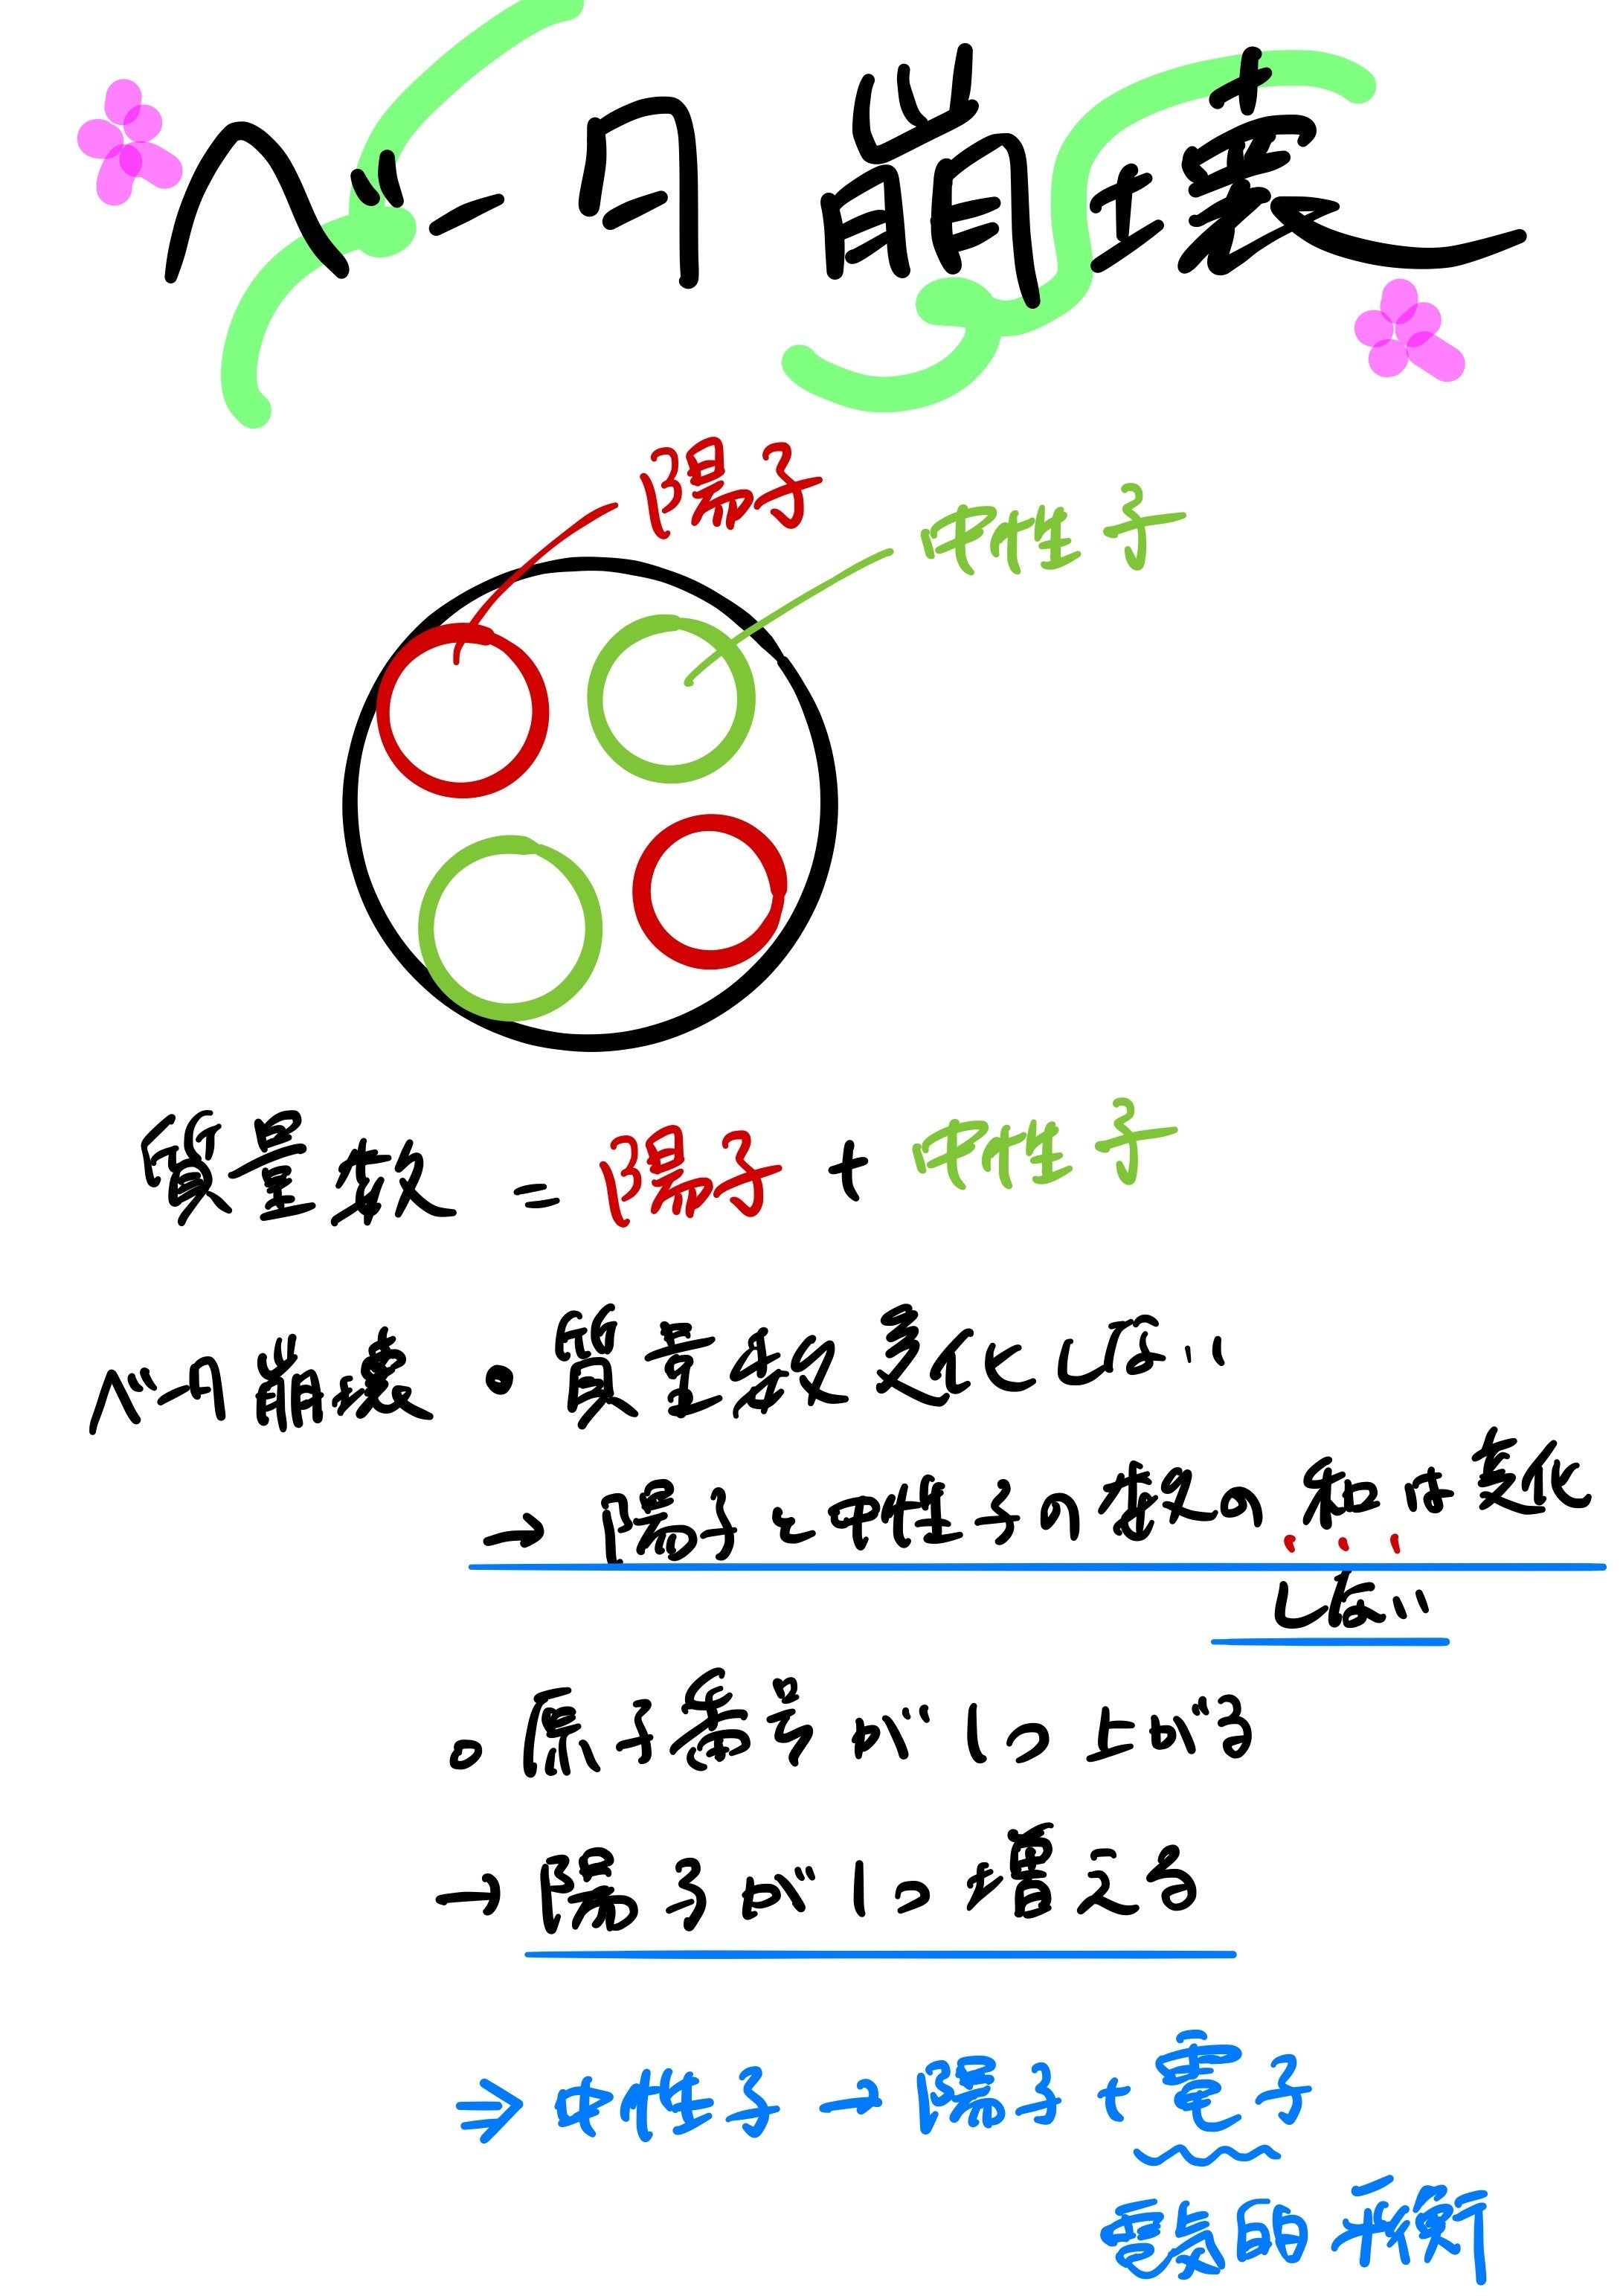 ベータ崩壊
陽子
中性子
質量数 = 陽子 + 中性子
ベータ崩壊 • 質量数変化しない
→ 陽子と中性子の数の和は変化
しない
• 原子番号が1つ上がる
→ 陽子が1つ増える
⇒ 中性子 → 陽子 + 電子
電気的平衡